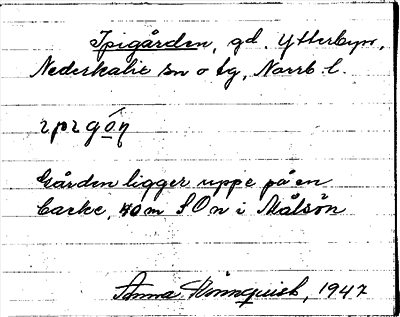 Ipigården, gd. Ytterbyn,
Nederkalix sn o tg, Norrb. l.
ɩpɩgó̠n̥
Gården ligger uppe på en
backe, som S O n i Målsön
Anna Rönnquist, 1947